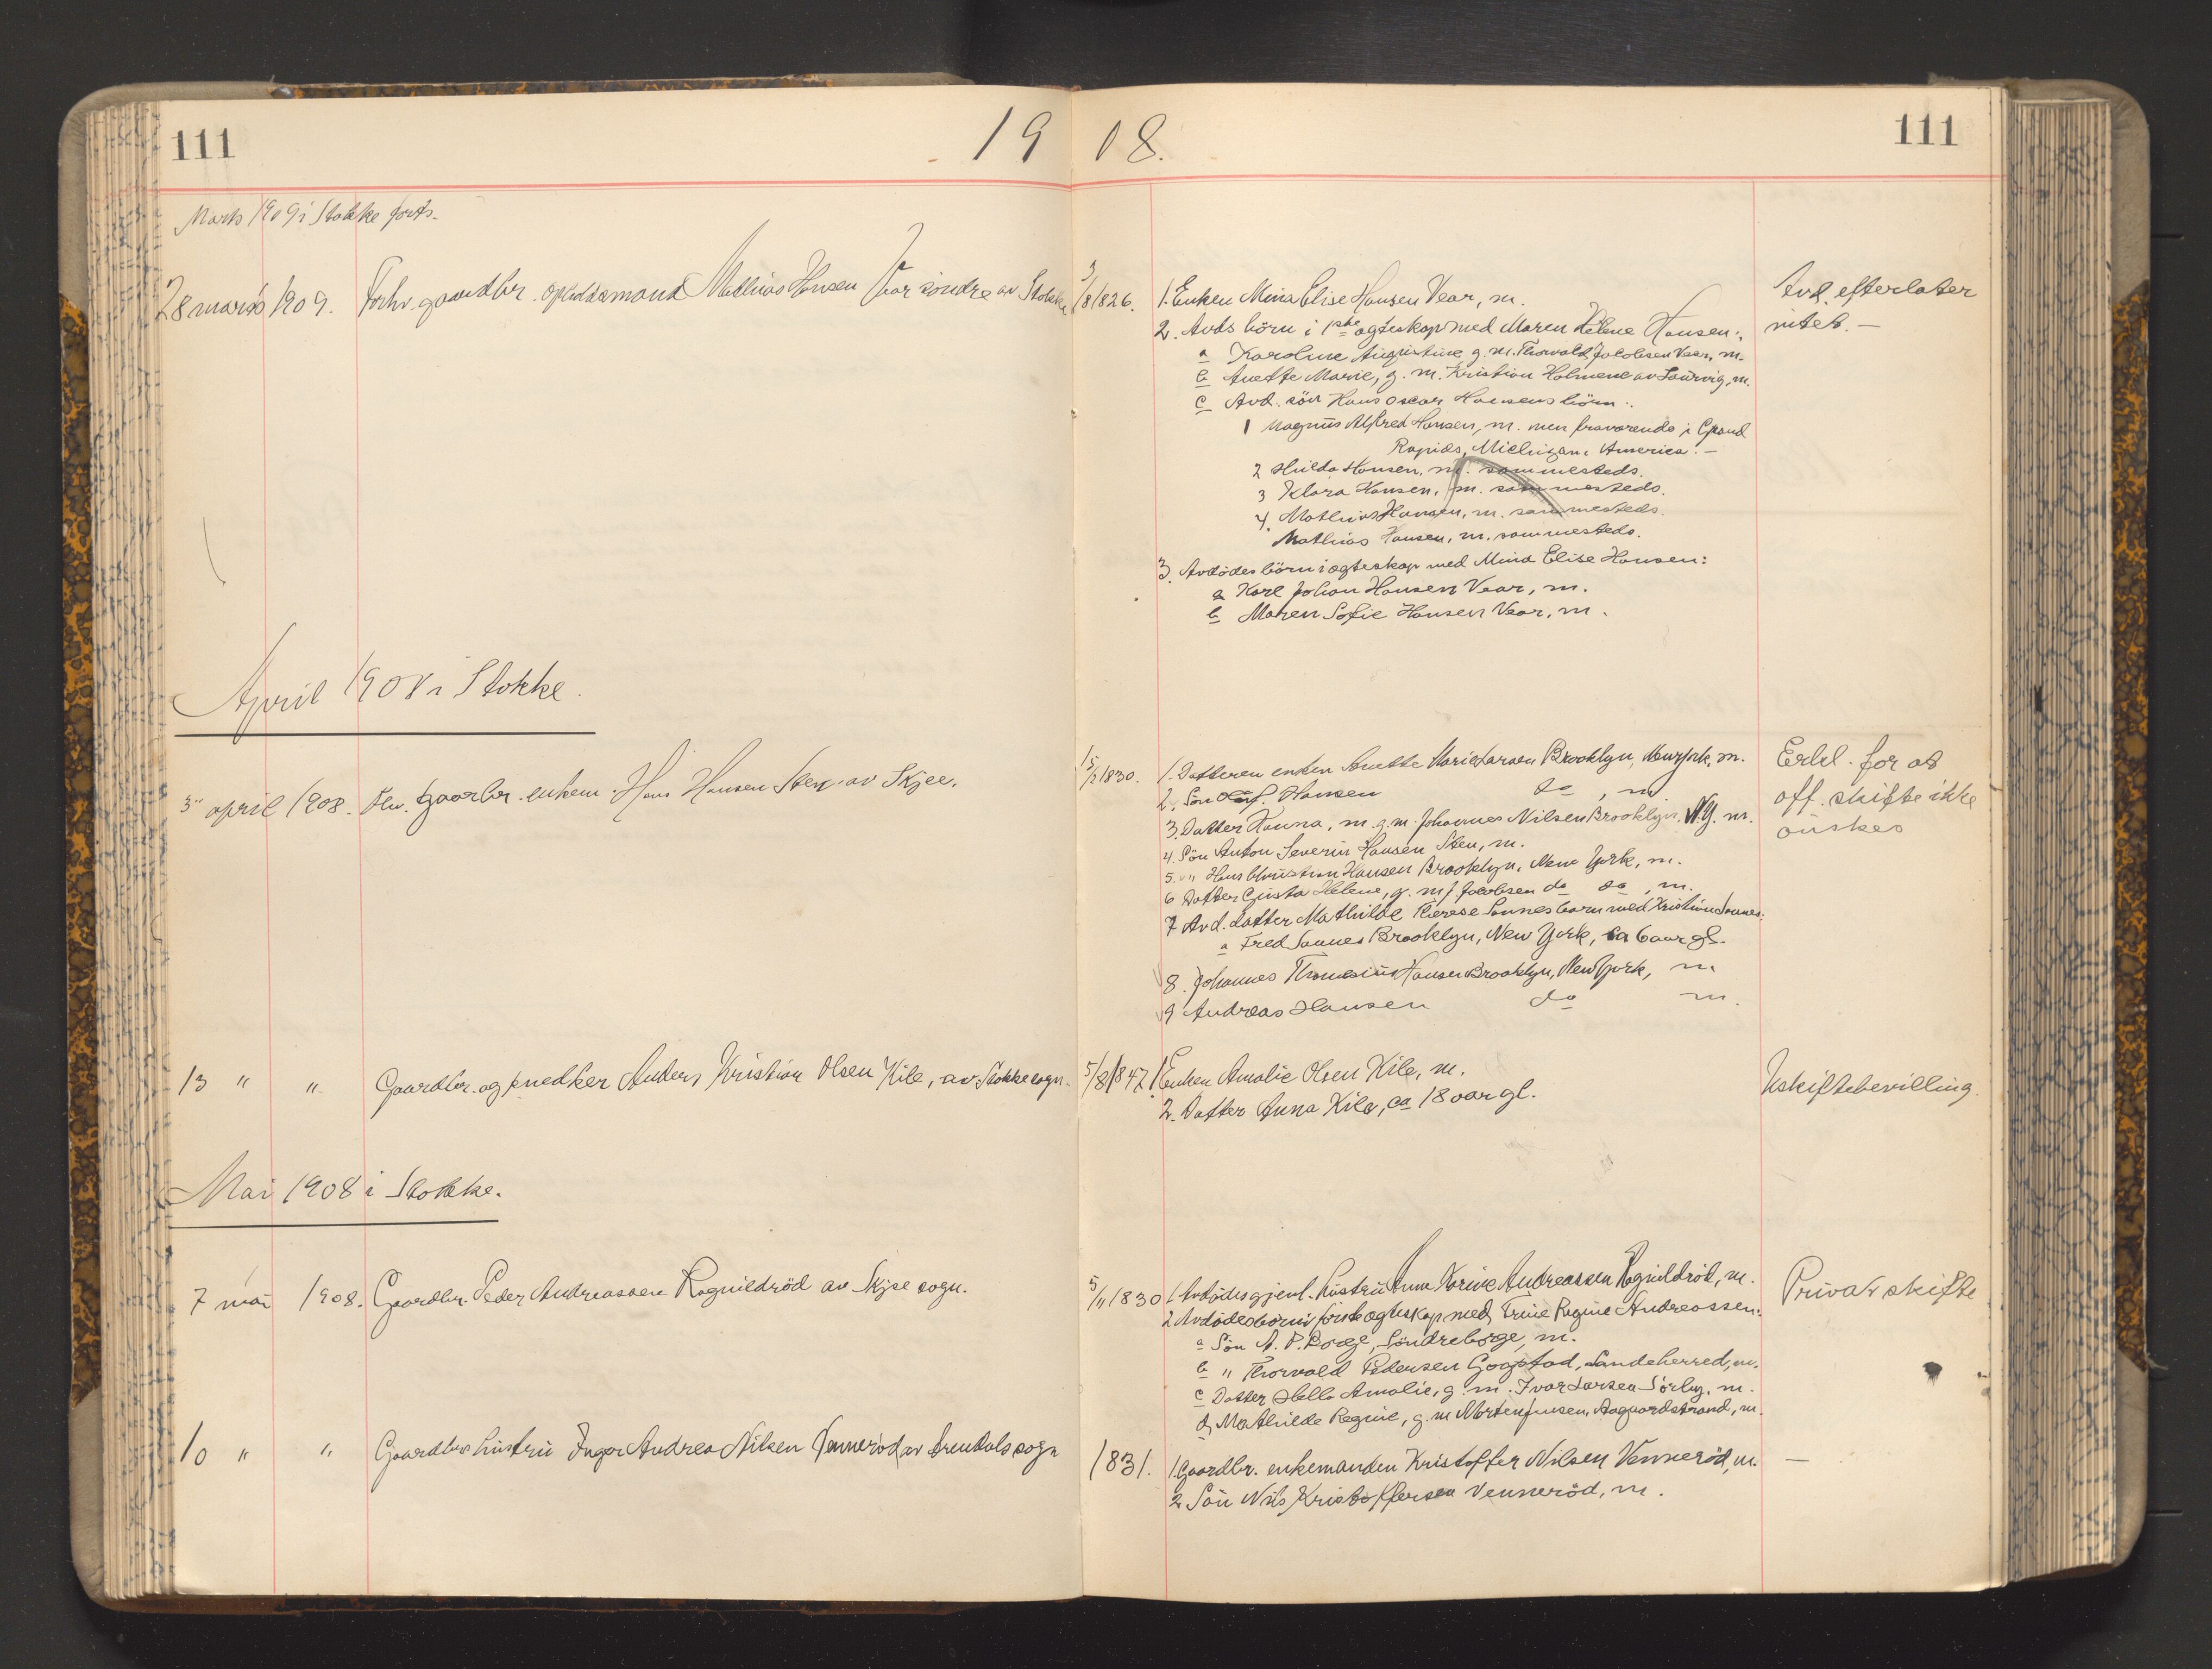 111
19 08.
111
Marts 1909 i Stokke forts.
28 marts 1909. Forhv. gaardbr. opholdsmand Mathias Hansen Vear söndre av Stokke
3/8 1826.
1. Enken Mina Elise Hansen Vear, m.
2. Avds börn i 1ste egteskap med Maren Helene Hansen:
a Karoline Augustine g. m. Thorvald Jakobsen Vear, m.
b Anette Marie, g. m. Kristian Holmene av Laurvig, m.
c Avd. sön Hans Oscar Hansens börn:
1 Magnus Alfred Hansen, m. men fraværende i Grand
Rapids, Michigan, America.-
2 Hilda Hansen, m. sammesteds.
3 Klara Hansen, m. sammesteds.
4. Mathias Hansen, m. sammesteds.
Mathias Hansen, m. sammesteds.
3. Avdödes börn i egteskap med Mina Elise Hansen:
a Karl Johan Hansen Vear, m.
b Maren Sofie Hansen Vear, m.
Avd. efterlater
intet.-
April 1908 i Stokke.
3" april 1908. Fhv. gaardbr. enkem. Hans Hansen Sten av Skjee.
15/2 1830.
1. Datteren enken Anette Marie Larsen Brooklyn, Newyork, m.
2. Sön Olaf Hansen do, m
3. Datter Hanna, m. g. m. Johannes Nilsen Brooklyn, N.Y. m.
4. Sön Anton Severin Hansen Sten, m.
5. " Hans Christian Hansen Brooklyn, New York, m.
6 Datter Gusta Helene, g. m. J Jacobsen do do, m.
7 Avd. datter Mathilde Therese Sannes barn med Kristian Sannes:
a Fred Sannes Brooklyn, New York, ca 6 aar gl.
8. Johannes Thomesius Hansen Brooklyn, New York, m
9 Andreas Hansen do m.
Erkl. for at
off. skifte ikke
önskes
13 " " Gaardbr. og snedker Anders Kristian Olsen Kile, av Stokke sogn.
5/8 1847.
1. Enken Amalie Olsen Kile, m.
2. Datter Anna Kile, ca 18 aar gl.
Uskiftebevilling.
Mai 1908 i Stokke.
7 mai 1908. Gaardbr. Peder Andreassen Ragnildröd av Skjee sogn.
5/11 1830
1 Avdödes gjenl. hustru Anne Karine Andreassen Ragnildröd, m.
2 Avdödes börn i förste egteskap med Trine Regine Andreassen:
a Sön A. P. Borge, Söndre borge, m.
b " Thorvald Pedersen Gogstad, Sandeherred, m.
c Datter Helle Amalie, g. m. Ivar Larsen Sörby, m.
d Mathilde Regine, g. m Morten Jensen, Aagaardstrand, m.
Privat skifte
10 " " Gaardbrs hustru Inger Andrea Nilsen Vennerod av Arendals sogn
1831.
1. Gaardbr. enkemanden Kristoffer Nilsen Venneröd, m.
2 Sön Nils Kristoffersen Venneröd, m.
-